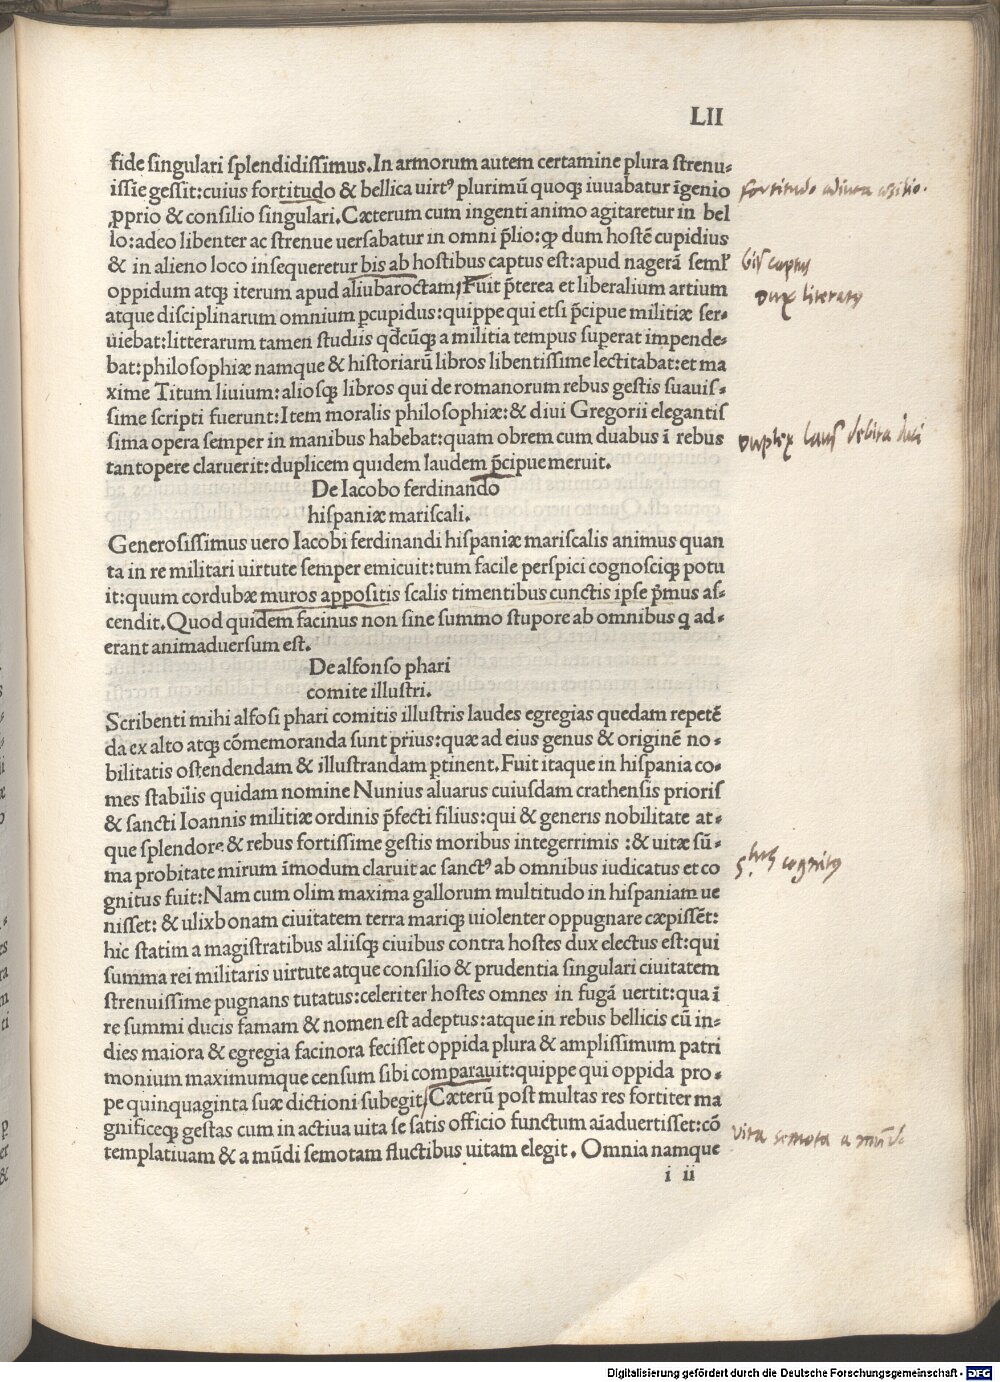 LII
fide singulari splendidissimus. In armorum autem certamine plura strenu-
issīe gessit: cuius fortitudo & bellica uirtꝰ plurimū quoqꝫ iuuabatur īgenio
ꝓprio & consilio singulari. Cæterum cum ingenti animo agitaretur in bel
lo: adeo libenter ac strenue uersabatur in omni p̄lio: ꝙ dum hostē cupidius
& in alieno loco insequeretur bis ab hostibus captus est: apud nagerā semel
oppidum atqꝫ iterum apud aliubaroctam/Fuit p̄terea et liberalium artium
atque disciplinarum omnium ꝑcupidus: quippe qui etsi p̄cipue militiæ ser-
uiebat: litterarum tamen studiis qd̄cūqꝫ a militia tempus superat impende-
bat: philosophiæ namque & historiarū libros libentissime lectitabat: et ma
xime Titum liuium: aliosqꝫ libros qui de romanorum rebus gestis suauis-
sime scripti fuerunt: Item moralis philosophiæ: & diui Gregorii elegantis
sima opera semper in manibus habebat: quam obrem cum duabus ī rebus
tantopere claruerit: duplicem quidem laudem p̄cipue meruit.
De Iacobo ferdinando
hispaniæ mariscali.
Generosissimus uero Iacobi ferdinandi hispaniæ mariscalis animus quan
ta in re militari uirtute semper emicuit: tum facile perspici cognosciqꝫ potu
it: quum cordubæ muros appositis scalis timentibus cunctis ipse p̄mus as-
cendit. Quod quidem facinus non sine summo stupore ab omnibus q ad-
erant animaduersum est.
De alfonso phari
comite illustri.
Scribenti mihi alfōsi phari comitis illustris laudes egregias quedam repetē
da ex alto atqꝫ cōmemoranda sunt prius: quæ ad eius genus & originē no-
bilitatis ostendendam & illustrandam ꝑtinent. Fuit itaque in hispania co-
mes stabilis quidam nomine Nunius aluarus cuiusdam crathensis prioris
& sancti Ioannis militiæ ordinis p̄fecti filius: qui & generis nobilitate at-
que splendore & rebus fortissime gestis moribus integerrimis : & uitæ sū-
ma probitate mirum īmodum claruit ac sanctꝰ ab omnibus iudicatus et co
gnitus fuit: Nam cum olim maxima gallorum multitudo in hispaniam ue
nisset: & ulixbonam ciuitatem terra mariqꝫ uiolenter oppugnare cæpissēt:
hic statim a magistratibus aliisqꝫ ciuibus contra hostes dux electus est: qui
summa rei militaris uirtute atque consilio & prudentia singulari ciuitatem
strenuissime pugnans tutatus: celeriter hostes omnes in fugā uertit: qua ī
re summi ducis famam & nomen est adeptus: atque in rebus bellicis cū in-
dies maiora & egregia facinora fecisset oppida plura & amplissimum patri
monium maximumque censum sibi comparauit: quippe qui oppida pro-
pe quinquaginta suæ dictioni subegit/Cæterū post multas res fortiter ma
gnificeqꝫ gestas cum in actiua uita se satis officio functum aīaduertisset: cō
templatiuam & a mūdi semotam fluctibus uitam elegit. Omnia namque
i ii
fortitudo adiuta
Bis captus
Dux literatus
Duplex laus debita duci
cognitus
vita semota a mūdo
Digitalisierung gefördert durch die Deutsche Forschungsgemeinschaft - DFG